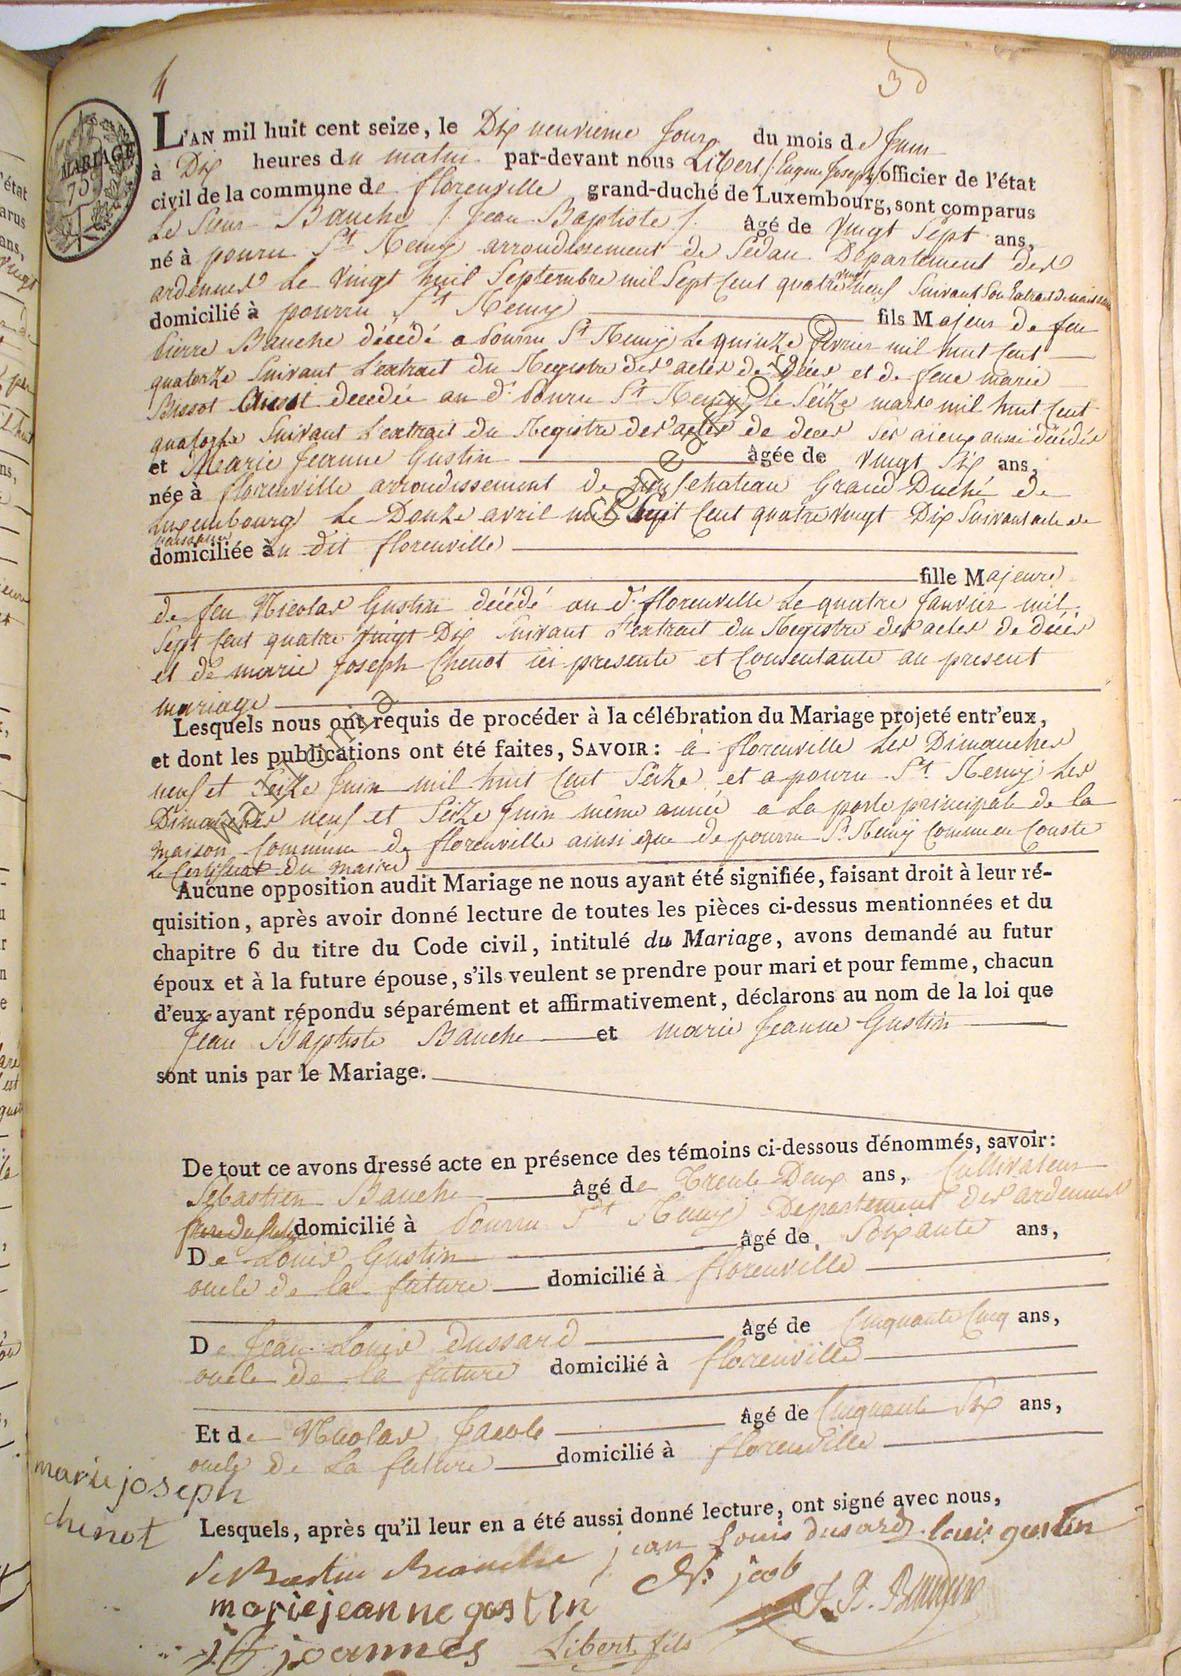 4
30
MARIAGE
75
L'AN mil huit cent seize, le Dix neuvieme jour du mois de Juin
à Dix heures du matin par-devant nous Libert / Eugene Joseph / officier de l'état
civil de la commune de florenville grand-duché de Luxembourg, sont comparus
Le Sieur Bauche / Jean Baptiste / âgé de vingt Sept ans,
né à pouru St Remy arrondissement de Sedan Departement des
ardennes le vingt huit Septembre mil Sept Cent quatre vingt neuf Suivant Son Extrait de naissance
domicilié à pourru St Remy fils Majeur de feu
Pierre Bauche décédé a pourru St Remy Le quinze fevrier mil huit Cent
quatorze Suivant L'extrait du Registre des actes de décès et de feue marie
Bissot decedée au dt pourru St Remy le Seize mars mil huit Cent
quatorze Suivant L'extrait du Registre des actes de deces Ses aieux aussi décédés
et Marie Jeanne Gustin âgée de vingt Six ans,
née à florenville arrondissement de neufchateau Grand Duché de
Luxembourg Le Douze avril mil Sept Cent quatre vingt Dix Suivant acte de
naissance
domiciliée au dit florenville
fille Majeure
de feu Nicolas Gustin décédé au dt florenville Le quatre Janvier mil
Sept Cent quatre vingt Dix Suivant L'extrait du Registre des actes de décès
et de marie Joseph Chenot ici presente et Consentante au present
mariage
Lesquels nous ont requis de procéder à la célébration du Mariage projeté entr'eux,
et dont les publications ont été faites, SAVOIR : à florenville Les Dimanches
neuf et Seize Juin mil huit Cent Seize et a pouru St Remy Les
Dimanches neuf et Seize Juin même année a La porte principale de la
maison Commune de florenville ainsi que de pourru St Remy Comme en Conste
Le Certificat du Maire
Aucune opposition audit Mariage ne nous ayant été signifiée, faisant droit à leur ré-
quisition, après avoir donné lecture de toutes les pièces ci-dessus mentionnées et du
chapitre 6 du titre du Code civil, intitulé du Mariage, avons demandé au futur
époux et à la future épouse, s'ils veulent se prendre pour mari et pour femme, chacun
d'eux ayant répondu séparément et affirmativement, déclarons au nom de la loi que
Jean Baptiste Bauche et marie Jeanne Gustin
sont unis par le Mariage.
De tout ce avons dressé acte en présence des témoins ci-dessous dénommés, savoir :
Sebastien Bauche âgé de Trente Deux ans, Cultivateur
frere du futur domicilié à pourru St Remy Departement des ardennes
De Louis Gustin âgé de Soixante ans,
oncle de la future domicilié à florenville
De Jean Louis Dussard âgé de Cinquante Cinq ans,
oncle de la future domicilié à florenville
Et de Nicolas Jacob âgé de Cinquante Six ans,
oncle de La future domicilié à florenville
marie joseph
chenot
Lesquels, après qu'il leur en a été aussi donné lecture, ont signé avec nous,
jean Louis dusard louis gustin
N. jacob
marie jeanne gostin
joannes Libert fils